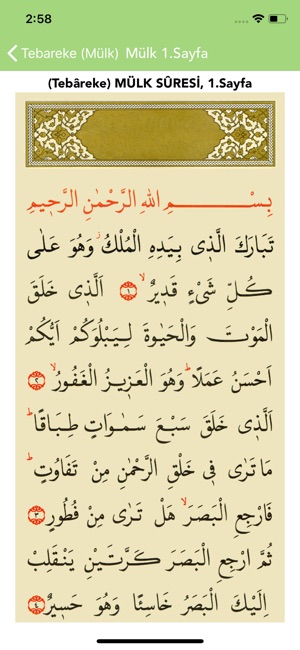 2:58
Tebareke (Mülk) Mülk 1.Sayfa
(Tebâreke) MÜLK SÛRESİ, 1.Sayfa
بِسْمِ اللّٰهِ الرَّحْمٰنِ الرَّح۪يمِ
تَبَارَكَ الَّذ۪ي بِيَدِهِ الْمُلْكُۘ وَهُوَ عَلٰى
كُلِّ شَيْءٍ قَد۪يرٌۙ ﴿١﴾ اَلَّذ۪ي خَلَقَ
الْمَوْتَ وَالْحَيٰوةَ لِيَبْلُوَكُمْ اَيُّكُمْ
اَحْسَنُ عَمَلًاۜ وَهُوَ الْعَز۪يزُ الْغَفُورُۙ ﴿٢﴾
اَلَّذ۪ي خَلَقَ سَبْعَ سَمٰوَاتٍ طِبَاقًاۜ
مَا تَرٰى ف۪ي خَلْقِ الرَّحْمٰنِ مِنْ تَفَاوُتٍۜ
فَارْجِعِ الْبَصَرَۙ هَلْ تَرٰى مِنْ فُطُورٍ ﴿٣﴾
ثُمَّ ارْجِعِ الْبَصَرَ كَرَّتَيْنِ يَنْقَلِبْ
اِلَيْكَ الْبَصَرُ خَاسِئًا وَهُوَ حَس۪يرٌ ﴿٤﴾